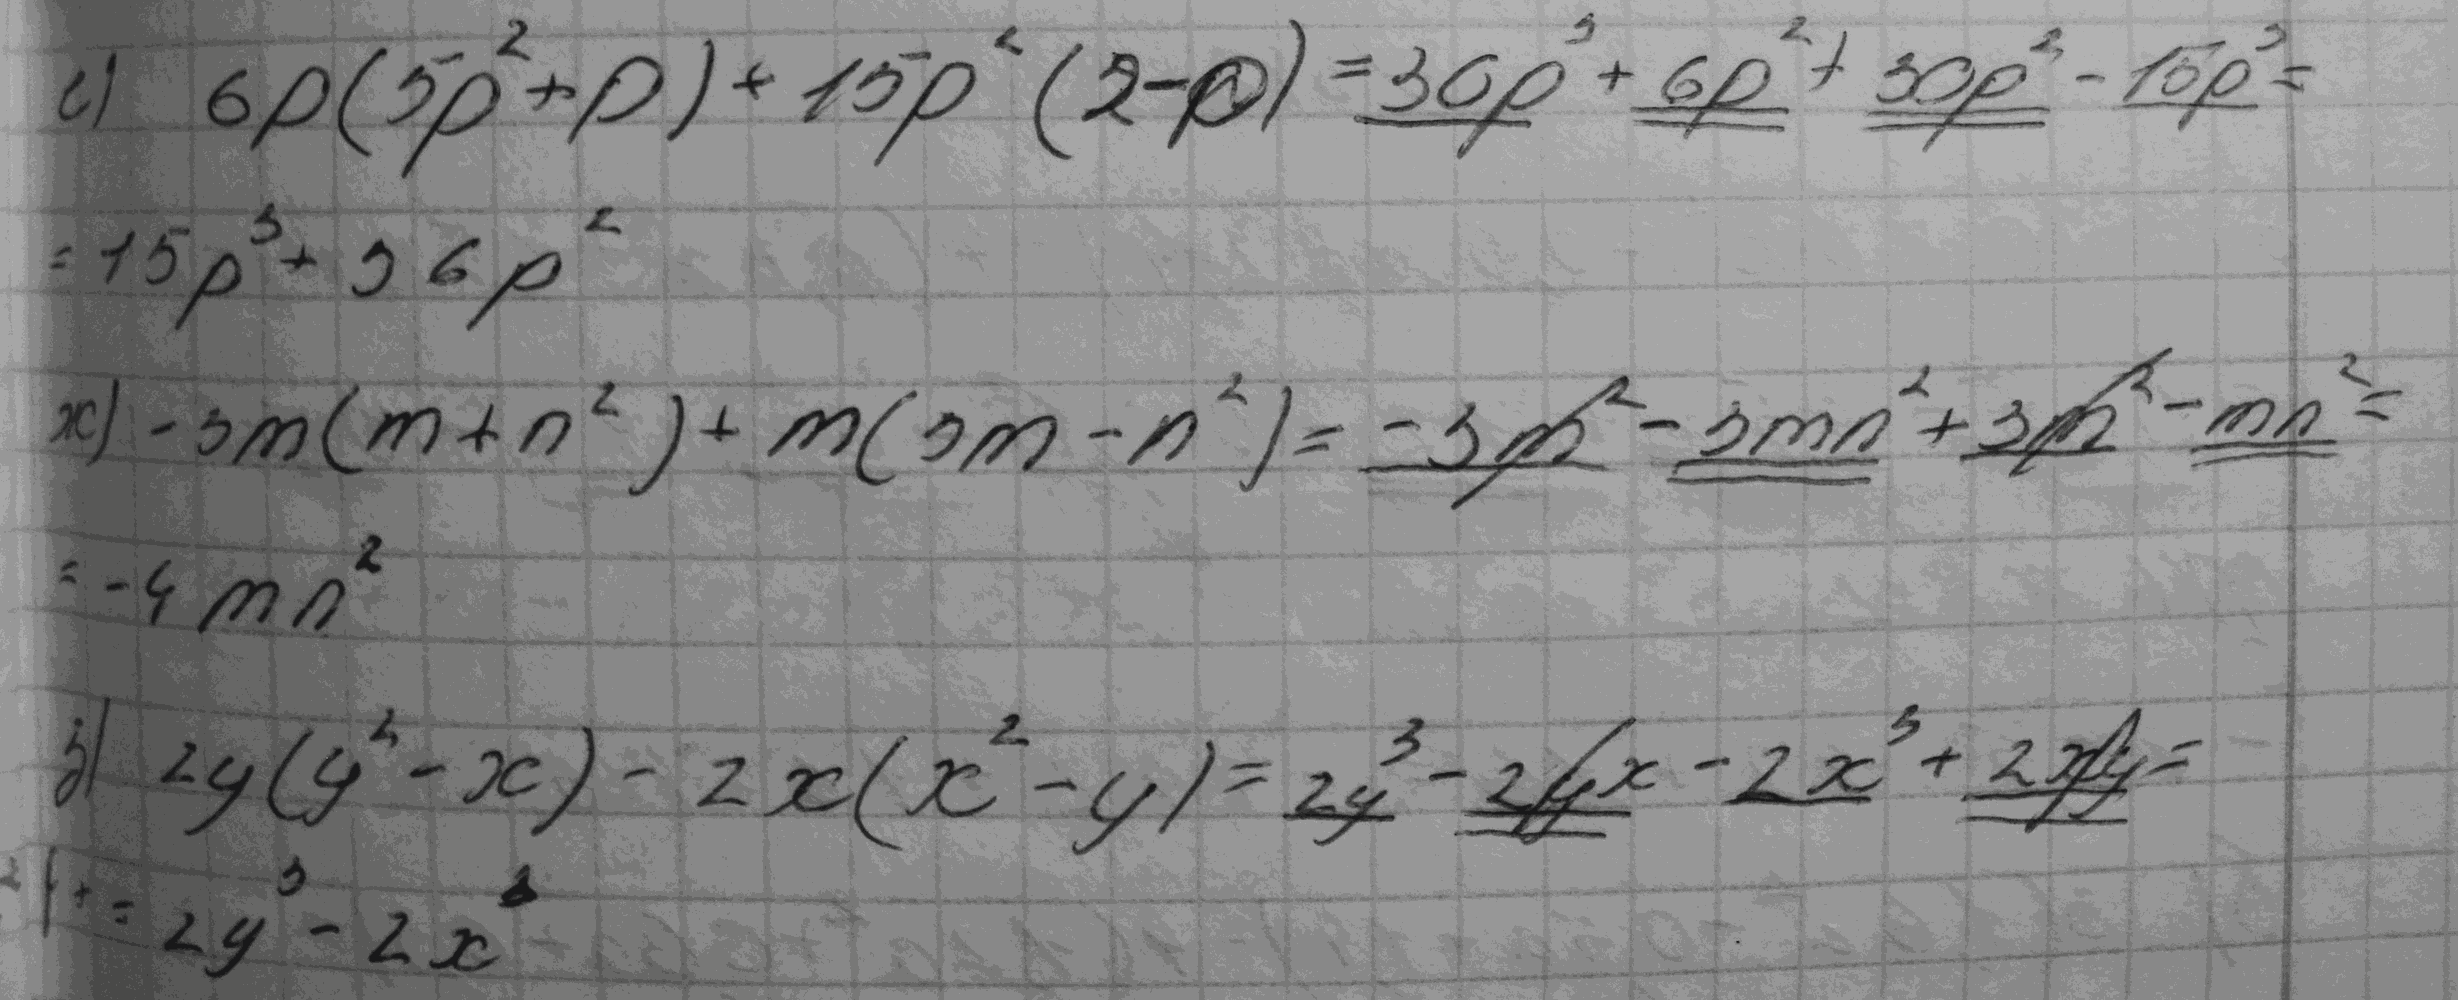 е) 6p(5p²+p)+15p²(2-p)=30p³+6p²+30p²-15p³=
=15p³+36p²
ж) -3m(m+n²)+m(3m-n²)=-3m²-3mn²+3m²-mn²=
=-4mn²
з) 2y(y²-x)-2x(x²-y)=2y³-2yx-2x³+2xy=
=2y³-2x³